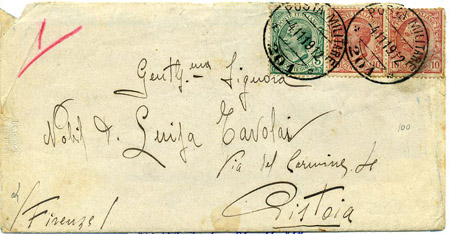 POSTA MILITARE
4.11.19.12
20A
POSTA MILITARE
4.11.19.12
20A
5
10
10
Gentil.ma Signora
Nobil D. Luisa Tavolai
Via del Carmine
Pistoia
/Firenze/
100